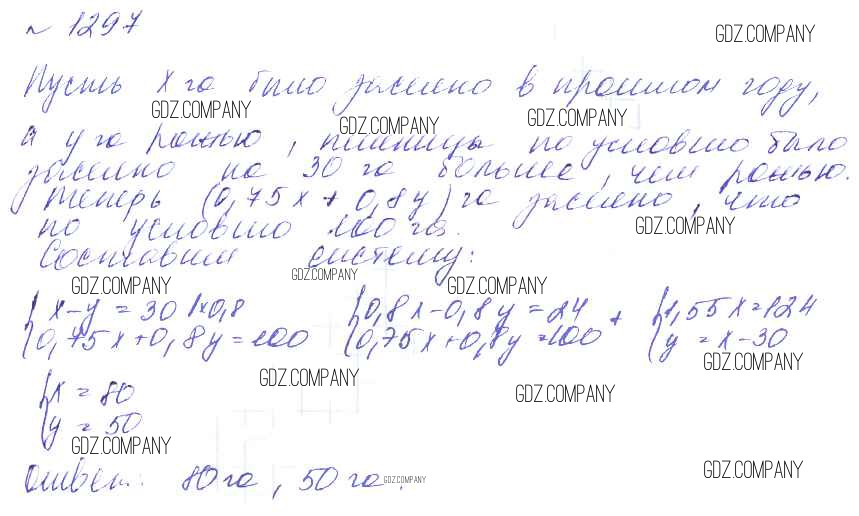 № 1297
GDZ.COMPANY
Пусть x га было засеяно в прошлом году,
GDZ.COMPANY GDZ.COMPANY GDZ.COMPANY
а y га рожью, пшеницы по условию было
засеяно на 30 га больше, чем рожью.
Теперь (0,75x + 0,8y) га засеяно, что
GDZ.COMPANY
по условию 100 га.
Составим систему:
GDZ.COMPANY GDZ.COMPANY GDZ.COMPANY
{x - y = 30 |×0,8 {0,8x - 0,8y = 24 + {1,55x = 124
{0,75x + 0,8y = 100 {0,75x + 0,8y = 100 {y = x - 30
GDZ.COMPANY
GDZ.COMPANY GDZ.COMPANY
{x = 80
{y = 50
GDZ.COMPANY
Ответ: 80 га, 50 га.
GDZ.COMPANY GDZ.COMPANY